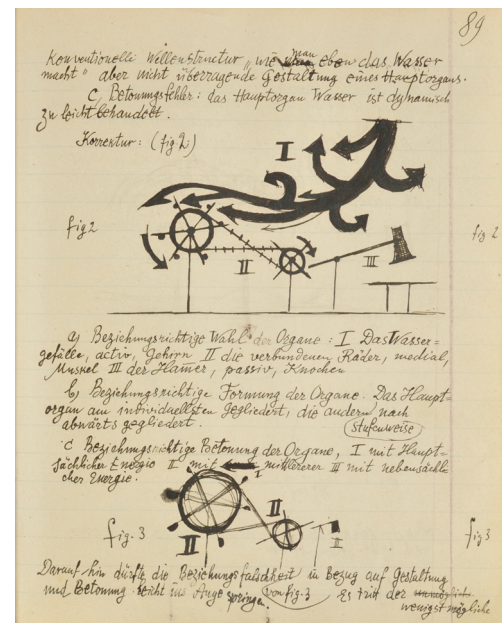 89
Konventionelle Wellenstructur "wie man eben das Wasser
macht" aber nicht überragende Gestaltung eines Hauptorgans.
c, Betonungsfehler: das Hauptorgan Wasser ist dynamisch
zu leicht behandelt.
Korrentur: (fig 2)
I
fig 2
II
III
fig 2
a) Beziehungsrichtige Wahl der Organe: I Das Wasser=
gefälle, activ, Gehirn II die verbundenen Räder, medial,
Muskel III der Hamer, passiv, Knochen
b) Beziehungsrichtige Formung der Organe. Das Haupt=
organ am individuellsten gegliedert, die andern nach
abwärts gegliedert.
stufenweise
c Beziehungsrichtige Betonung der Organe, I mit Haupt=
sächlicher Energie II mit mittlererer III mit nebensächli
cher Energie.
I
II
II
II
fig. 3
fig 3
Darauf hin dürfte die Beziehungsfalschheit in Bezug auf Gestaltung
und Betonung leicht ins Auge springen. von fig. 3 Es trat der
wenigst mögliche